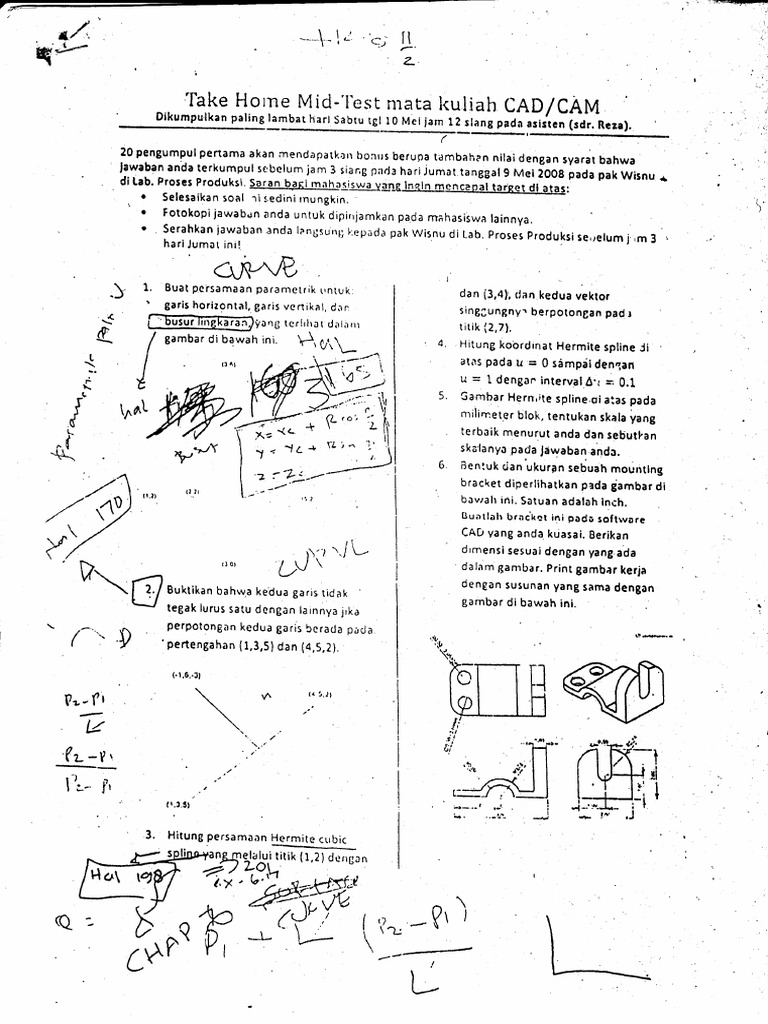 11
2
Take Home Mid-Test mata kuliah CAD/CAM
Dikumpulkan paling lambat hari Sabtu tgl 10 Mei jam 12 siang pada asisten (sdr. Reza).
20 pengumpul pertama akan mendapatkan bonus berupa tambahan nilai dengan syarat bahwa
jawaban anda terkumpul sebelum jam 3 siang pada hari Jumat tanggal 9 Mei 2008 pada pak Wisnu
di Lab. Proses Produksi. Saran bagi mahasiswa yang ingin mencapai target di atas:
• Selesaikan soal ini sedini mungkin.
• Fotokopi jawaban anda untuk dipinjamkan pada mahasiswa lainnya.
• Serahkan jawaban anda langsung kepada pak Wisnu di Lab. Proses Produksi sebelum jam 3
hari Jumat ini!
CURVE
1. Buat persamaan parametrik untuk:
garis horizontal, garis vertikal, dan
busur lingkaran, yang terlihat dalam
gambar di bawah ini.
HAL
Parametrik
hal
165
x = xc + R cos
y = yc + R sin
z = z
(1,2)
(2,2)
Hal 170
(3,0)
CURVE
2. Buktikan bahwa kedua garis tidak
tegak lurus satu dengan lainnya jika
perpotongan kedua garis berada pada
pertengahan (1,3,5) dan (4,5,2).
(-1,6,-3)
(4,5,2)
P2-P1
L
P2-P1
P2-P1
(1,3,5)
3. Hitung persamaan Hermite cubic
spline yang melalui titik (1,2) dengan
Hal 198
=> 201
CURVE
CHAP
P1 + L (P2-P1)
L
dan (3,4), dan kedua vektor
singgungnya berpotongan pada
titik (2,7).
4. Hitung koordinat Hermite spline di
atas pada u = 0 sampai dengan
u = 1 dengan interval Δu = 0.1
5. Gambar Hermite spline di atas pada
milimeter blok, tentukan skala yang
terbaik menurut anda dan sebutkan
skalanya pada jawaban anda.
6. Bentuk dan ukuran sebuah mounting
bracket diperlihatkan pada gambar di
bawah ini. Satuan adalah inch.
Buatlah bracket ini pada software
CAD yang anda kuasai. Berikan
dimensi sesuai dengan yang ada
dalam gambar. Print gambar kerja
dengan susunan yang sama dengan
gambar di bawah ini.